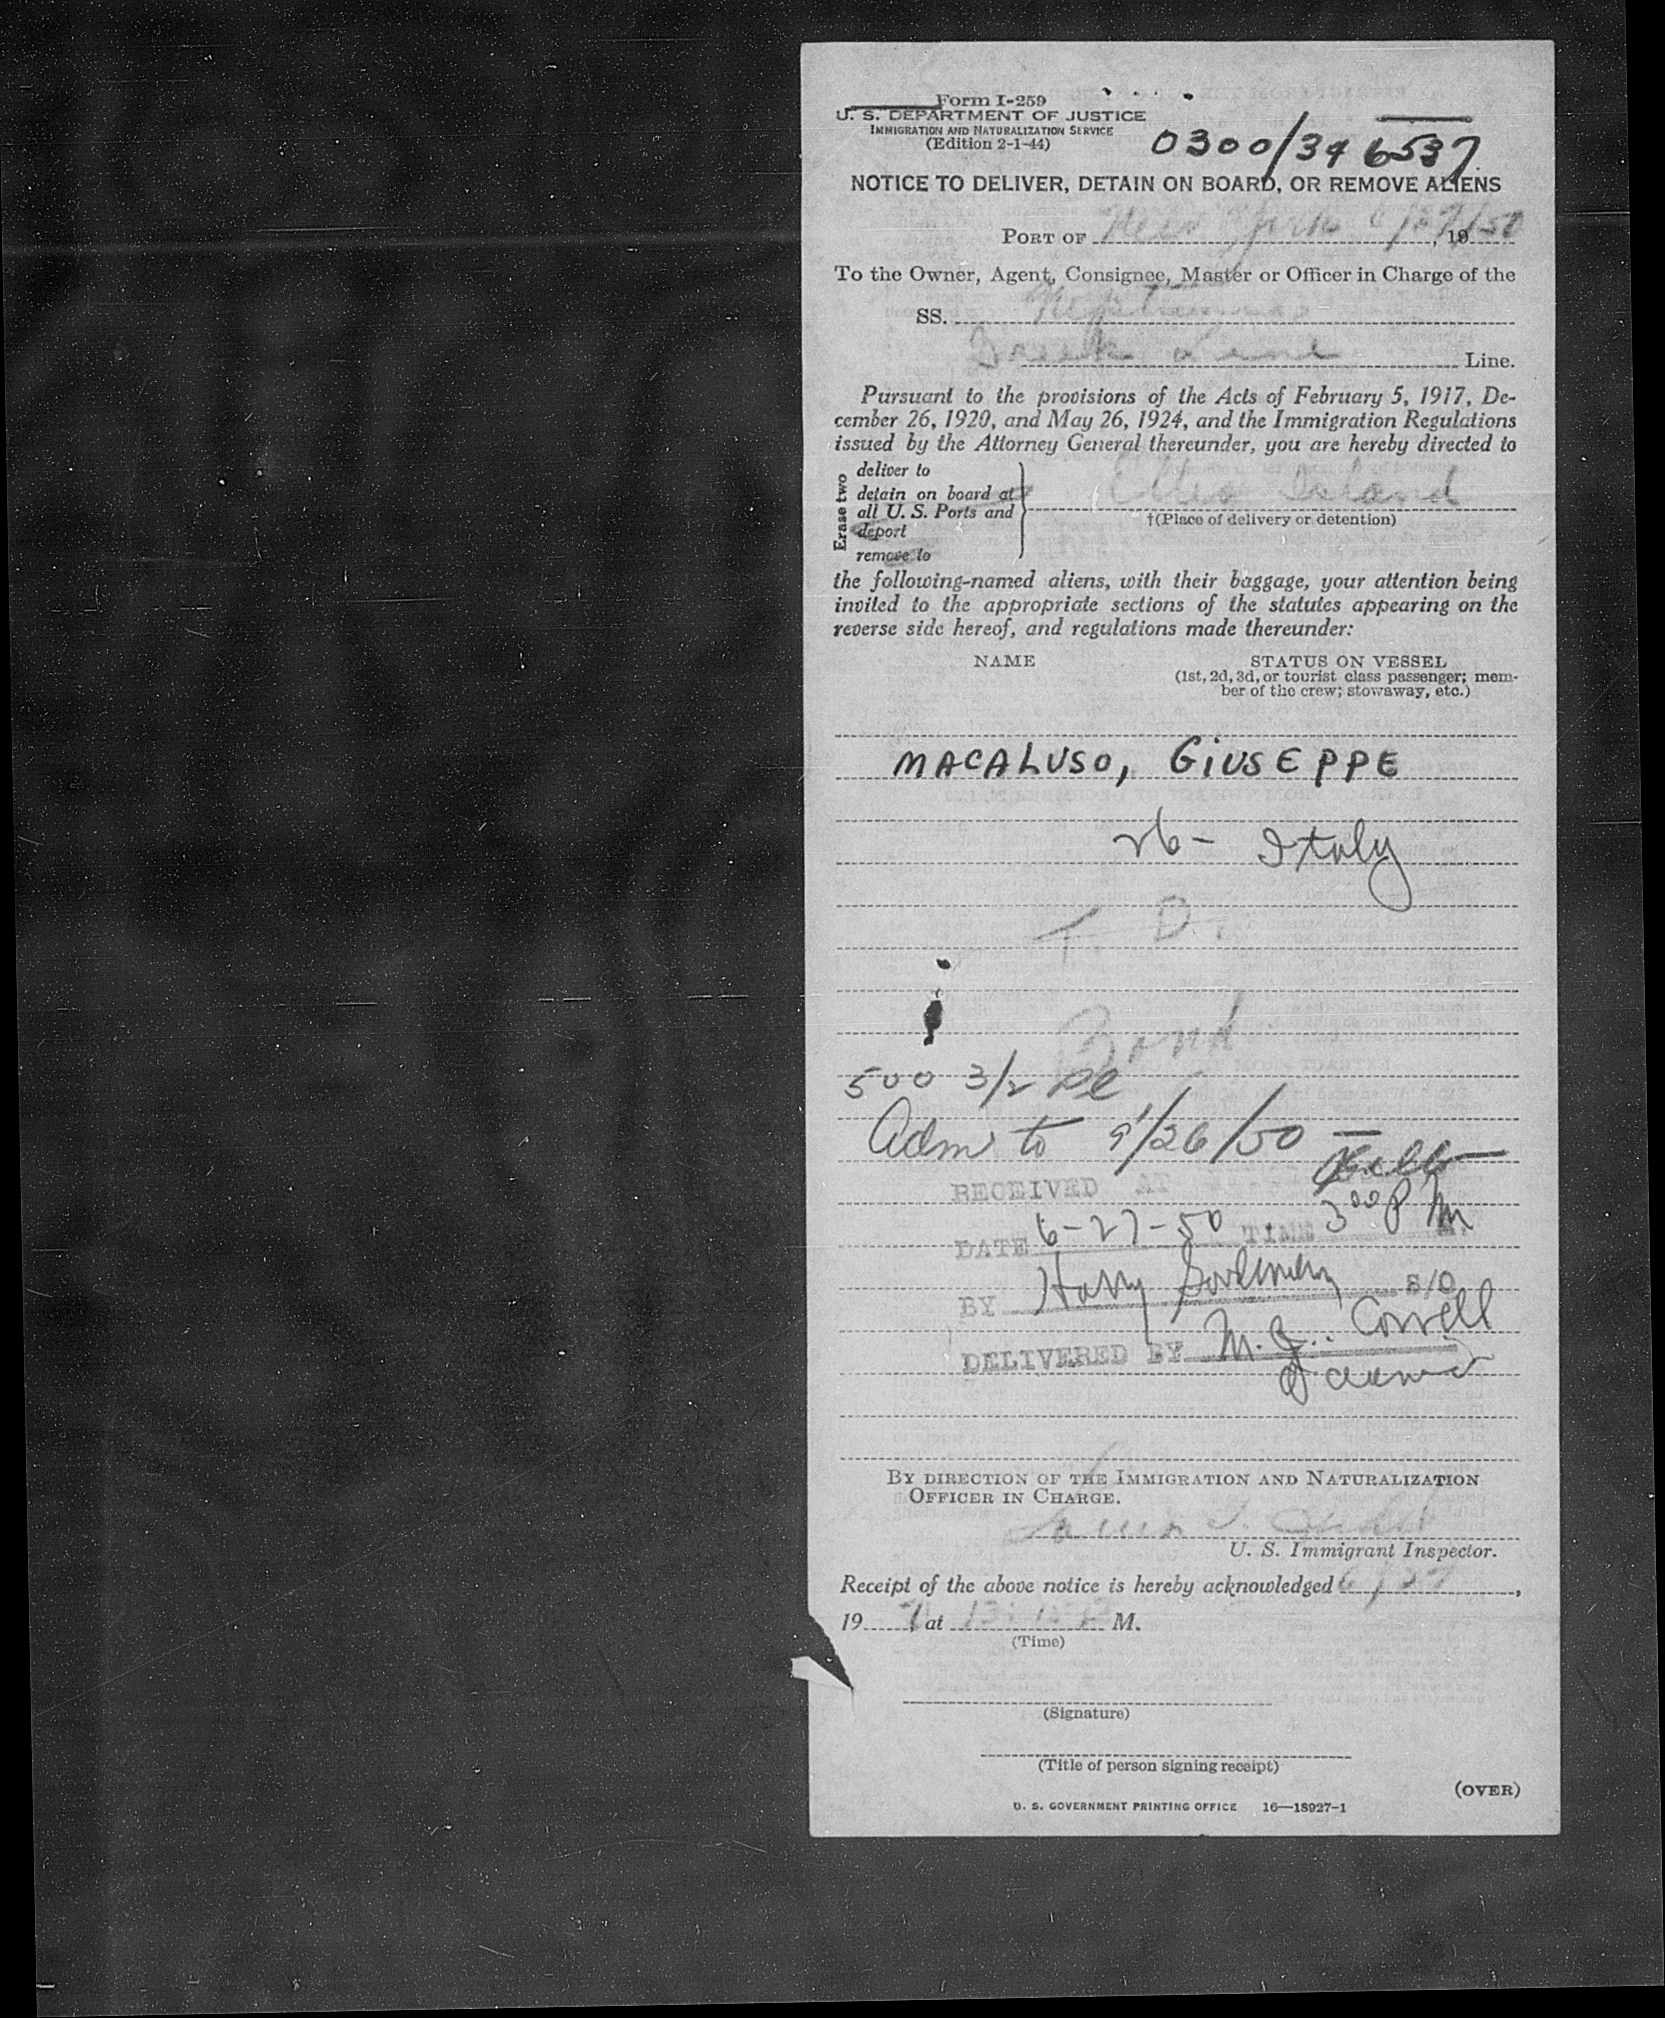 Form I-259
U. S. DEPARTMENT OF JUSTICE
IMMIGRATION AND NATURALIZATION SERVICE
(Edition 2-1-44)
0300/34 6537
NOTICE TO DELIVER, DETAIN ON BOARD, OR REMOVE ALIENS
PORT OF New York 6/27/50, 19
To the Owner, Agent, Consignee, Master or Officer in Charge of the
SS.
Greek Line Line.
Pursuant to the provisions of the Acts of February 5, 1917, De-
cember 26, 1920, and May 26, 1924, and the Immigration Regulations
issued by the Attorney General thereunder, you are hereby directed to
Erase two
deliver to
detain on board at
all U. S. Ports and
deport
remove to
Ellis Island
†(Place of delivery or detention)
the following-named aliens, with their baggage, your attention being
invited to the appropriate sections of the statutes appearing on the
reverse side hereof, and regulations made thereunder:
NAME STATUS ON VESSEL
(1st, 2d, 3d, or tourist class passenger; mem-
ber of the crew; stowaway, etc.)
MACALUSO, GiUSEPPE
26- Italy
T. D.
Bond
500 3/2
Adm to 9/26/50
RECEIVED AT
DATE 6-27-50 TIME 3 00 P M
BY Harry S/O
DELIVERED BY M. J. Correll
BY DIRECTION OF THE IMMIGRATION AND NATURALIZATION
OFFICER IN CHARGE.
U. S. Immigrant Inspector.
Receipt of the above notice is hereby acknowledged 6/27,
19 , at M.
(Time)
(Signature)
(Title of person signing receipt)
(OVER)
U. S. GOVERNMENT PRINTING OFFICE 16—18927-1